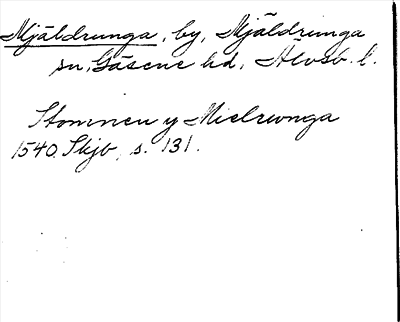 Mjäldrunga, by, Mjäldrunga
sn, Gäsene hd, Älvsb. l.
Stommen y Mielrwnga
1540. Skjb, s. 131.